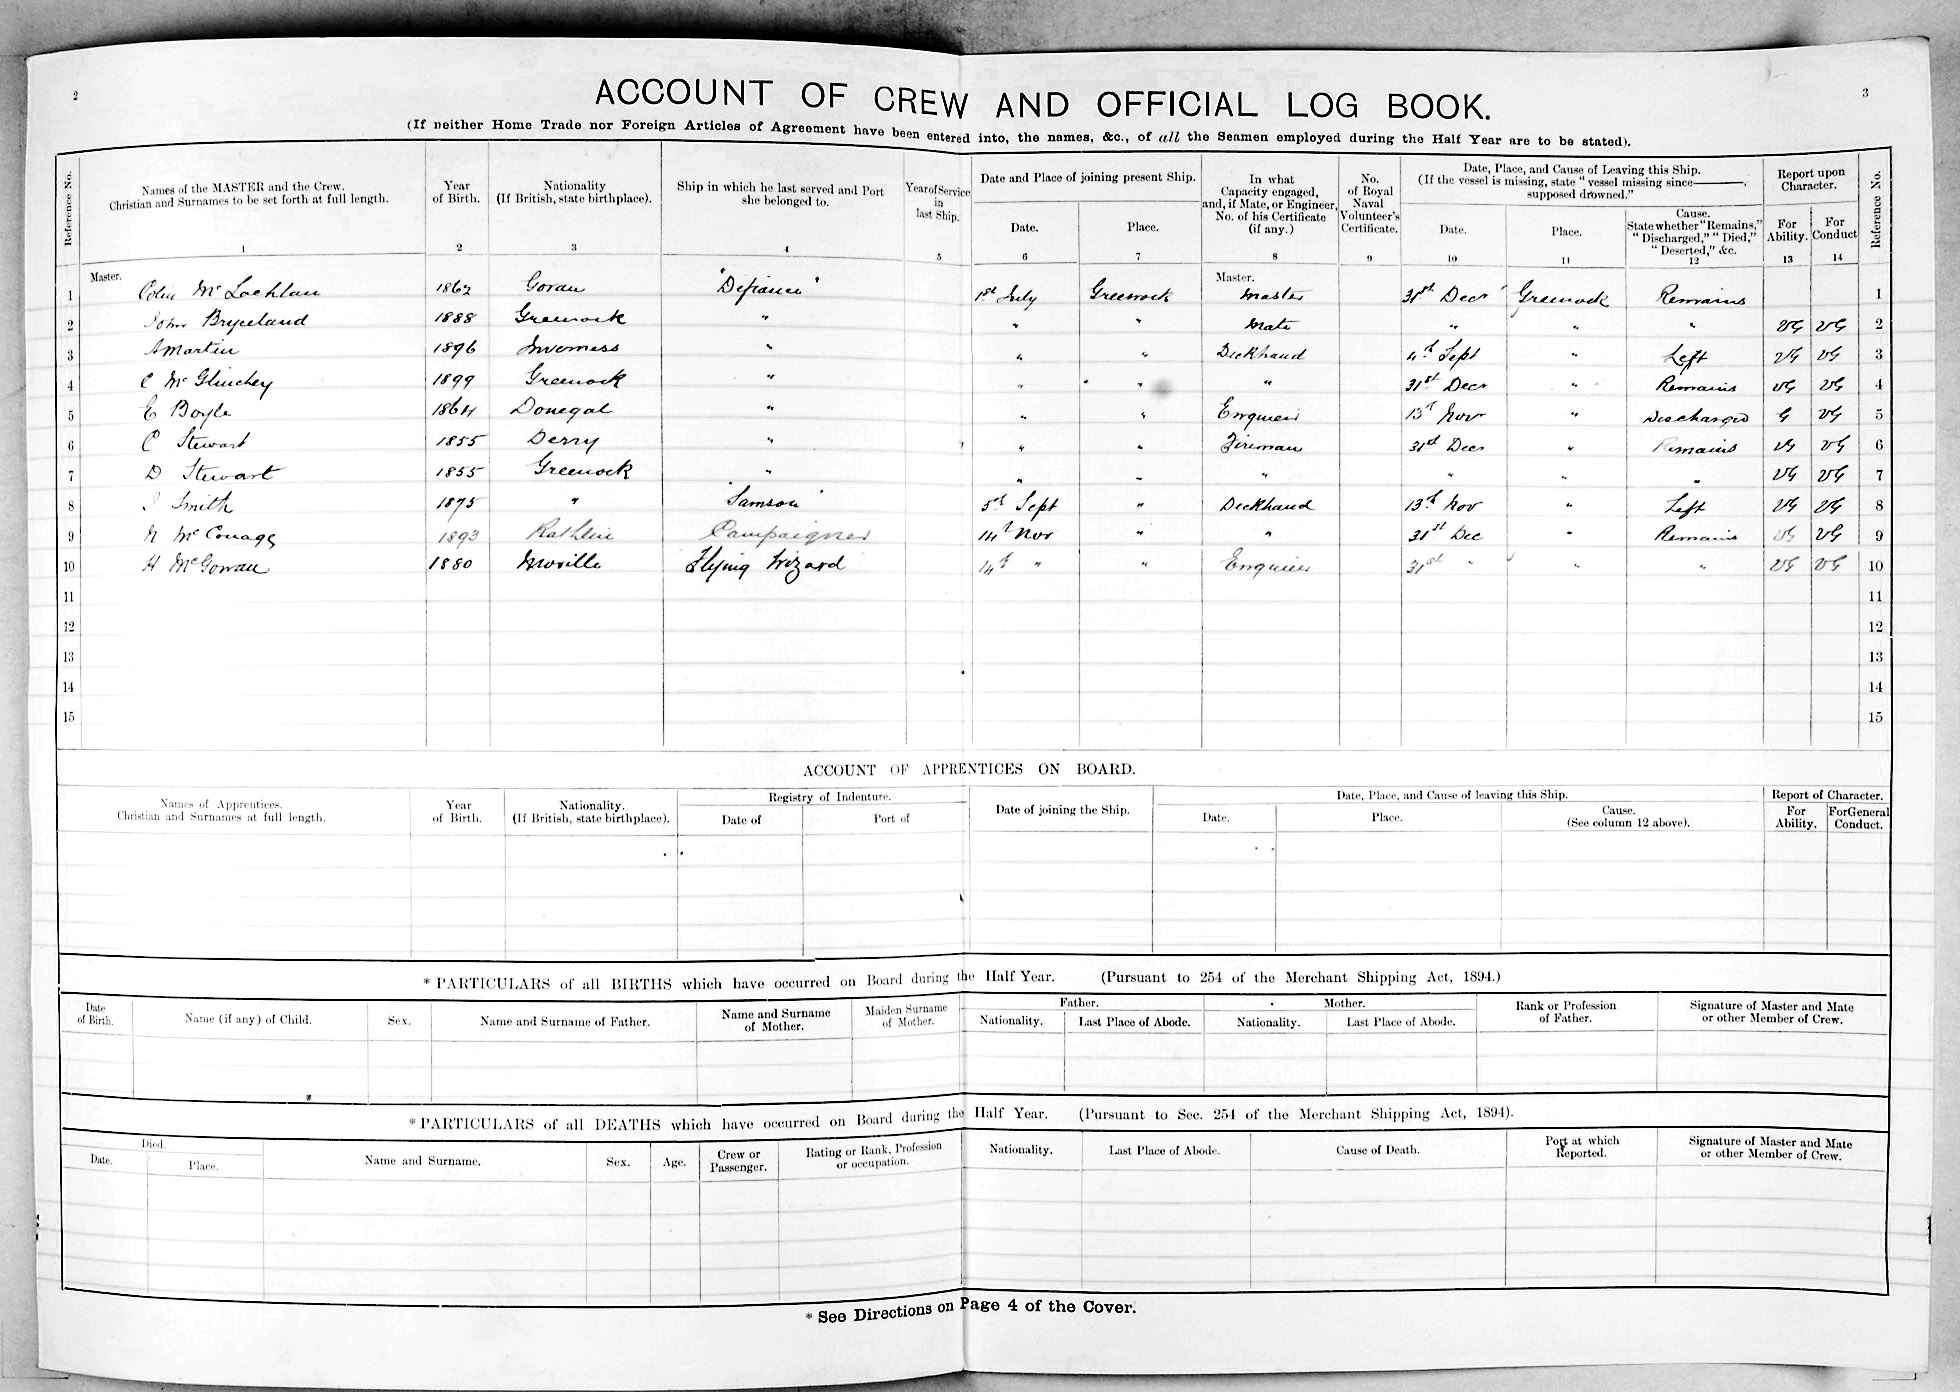 2
3
ACCOUNT OF CREW AND OFFICIAL LOG BOOK.
(If neither Home Trade nor Foreign Articles of Agreement have been entered into, the names, &c., of all the Seamen employed during the Half Year are to be stated).
Reference No. Names of the MASTER and the Crew. Christian and Surnames to be set forth at full length. Year of Birth. Nationality (If British, state birthplace). Ship in which he last served and Port she belonged to. Year of Service in last Ship. Date and Place of joining present Ship. Date. Place. In what Capacity engaged, and, if Mate, or Engineer, No. of his Certificate (if any.) No. of Royal Naval Volunteer's Certificate. Date, Place, and Cause of Leaving this Ship. (If the vessel is missing, state "vessel missing since———, supposed drowned." Date. Place. Cause. State whether "Remains," "Discharged," "Died," "Deserted," &c. Report upon Character. For Ability. For Conduct Reference No.
1 2 3 4 5 6 7 8 9 10 11 12 13 14
Master. Master.
1 Colin McLachlan 1862 Govan "Defiance" 1st July Greenock Master 31st Decr Greenock Remains 1
2 John Bryceland 1888 Greenock " " " Mate " " " VG VG 2
3 A Martin 1896 Inverness " " " Deckhand 4th Sept " Left VG VG 3
4 C McGlinchey 1899 Greenock " " " " 31st Decr " Remains VG VG 4
5 E Boyle 1864 Donegal " " " Engineer 13th Nov " Discharged G VG 5
6 C Stewart 1855 Derry " " " Fireman 31st Decr " Remains VG VG 6
7 D Stewart 1855 Greenock " " " " " " " VG VG 7
8 J Smith 1875 " "Samson" 5th Sept " Deckhand 13th Nov " Left VG VG 8
9 N McCouagg 1893 Rathlin Campaigner 14th Nov " " 31st Dec " Remains VG VG 9
10 H McGowan 1880 Moville Flying Wizard 14th " " Engineer 31st " " " VG VG 10
11 11
12 12
13 13
14 14
15 15
ACCOUNT OF APPRENTICES ON BOARD.
Names of Apprentices. Christian and Surnames at full length. Year of Birth. Nationality. (If British, state birthplace). Registry of Indenture. Date of Port of Date of joining the Ship. Date, Place, and Cause of leaving this Ship. Date. Place. Cause. (See column 12 above). Report of Character. For Ability. For General Conduct.
* PARTICULARS of all BIRTHS which have occurred on Board during the Half Year. (Pursuant to 254 of the Merchant Shipping Act, 1894.)
Date of Birth. Name (if any) of Child. Sex. Name and Surname of Father. Name and Surname of Mother. Maiden Surname of Mother. Father. Nationality. Last Place of Abode. Mother. Nationality. Last Place of Abode. Rank or Profession of Father. Signature of Master and Mate or other Member of Crew.
* PARTICULARS of all DEATHS which have occurred on Board during the Half Year. (Pursuant to Sec. 254 of the Merchant Shipping Act, 1894).
Died. Date. Place. Name and Surname. Sex. Age. Crew or Passenger. Rating or Rank, Profession or occupation. Nationality. Last Place of Abode. Cause of Death. Port at which Reported. Signature of Master and Mate or other Member of Crew.
* See Directions on Page 4 of the Cover.